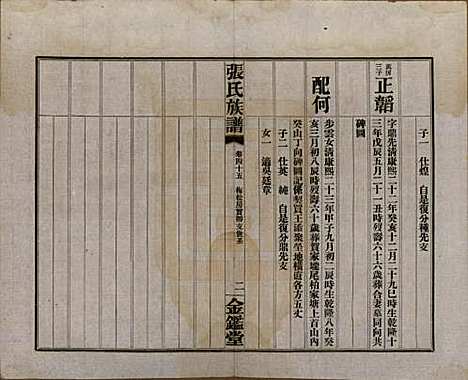 子一 仕煌 自是復分種先支
長房三子 正韜
字鼎先清康熙二十二年癸亥十二月二十九巳時生乾隆十
三年戊辰五月二十一丑時歿壽六十六歲葬合妻墓同向共
碑圖
配何
步雲女清康熙二十三年甲子九月初二辰時生乾隆八年癸
亥三月初八辰時歿壽六十歲葬賀家壠尾柏家塘上首山內
癸山丁向碑圖記係契買王添聚坐地橫直各方五丈
子二 仕英 純 自是復分鼎先支
女一 適吳廷章
張氏族譜
卷四十五
二
金鑑堂